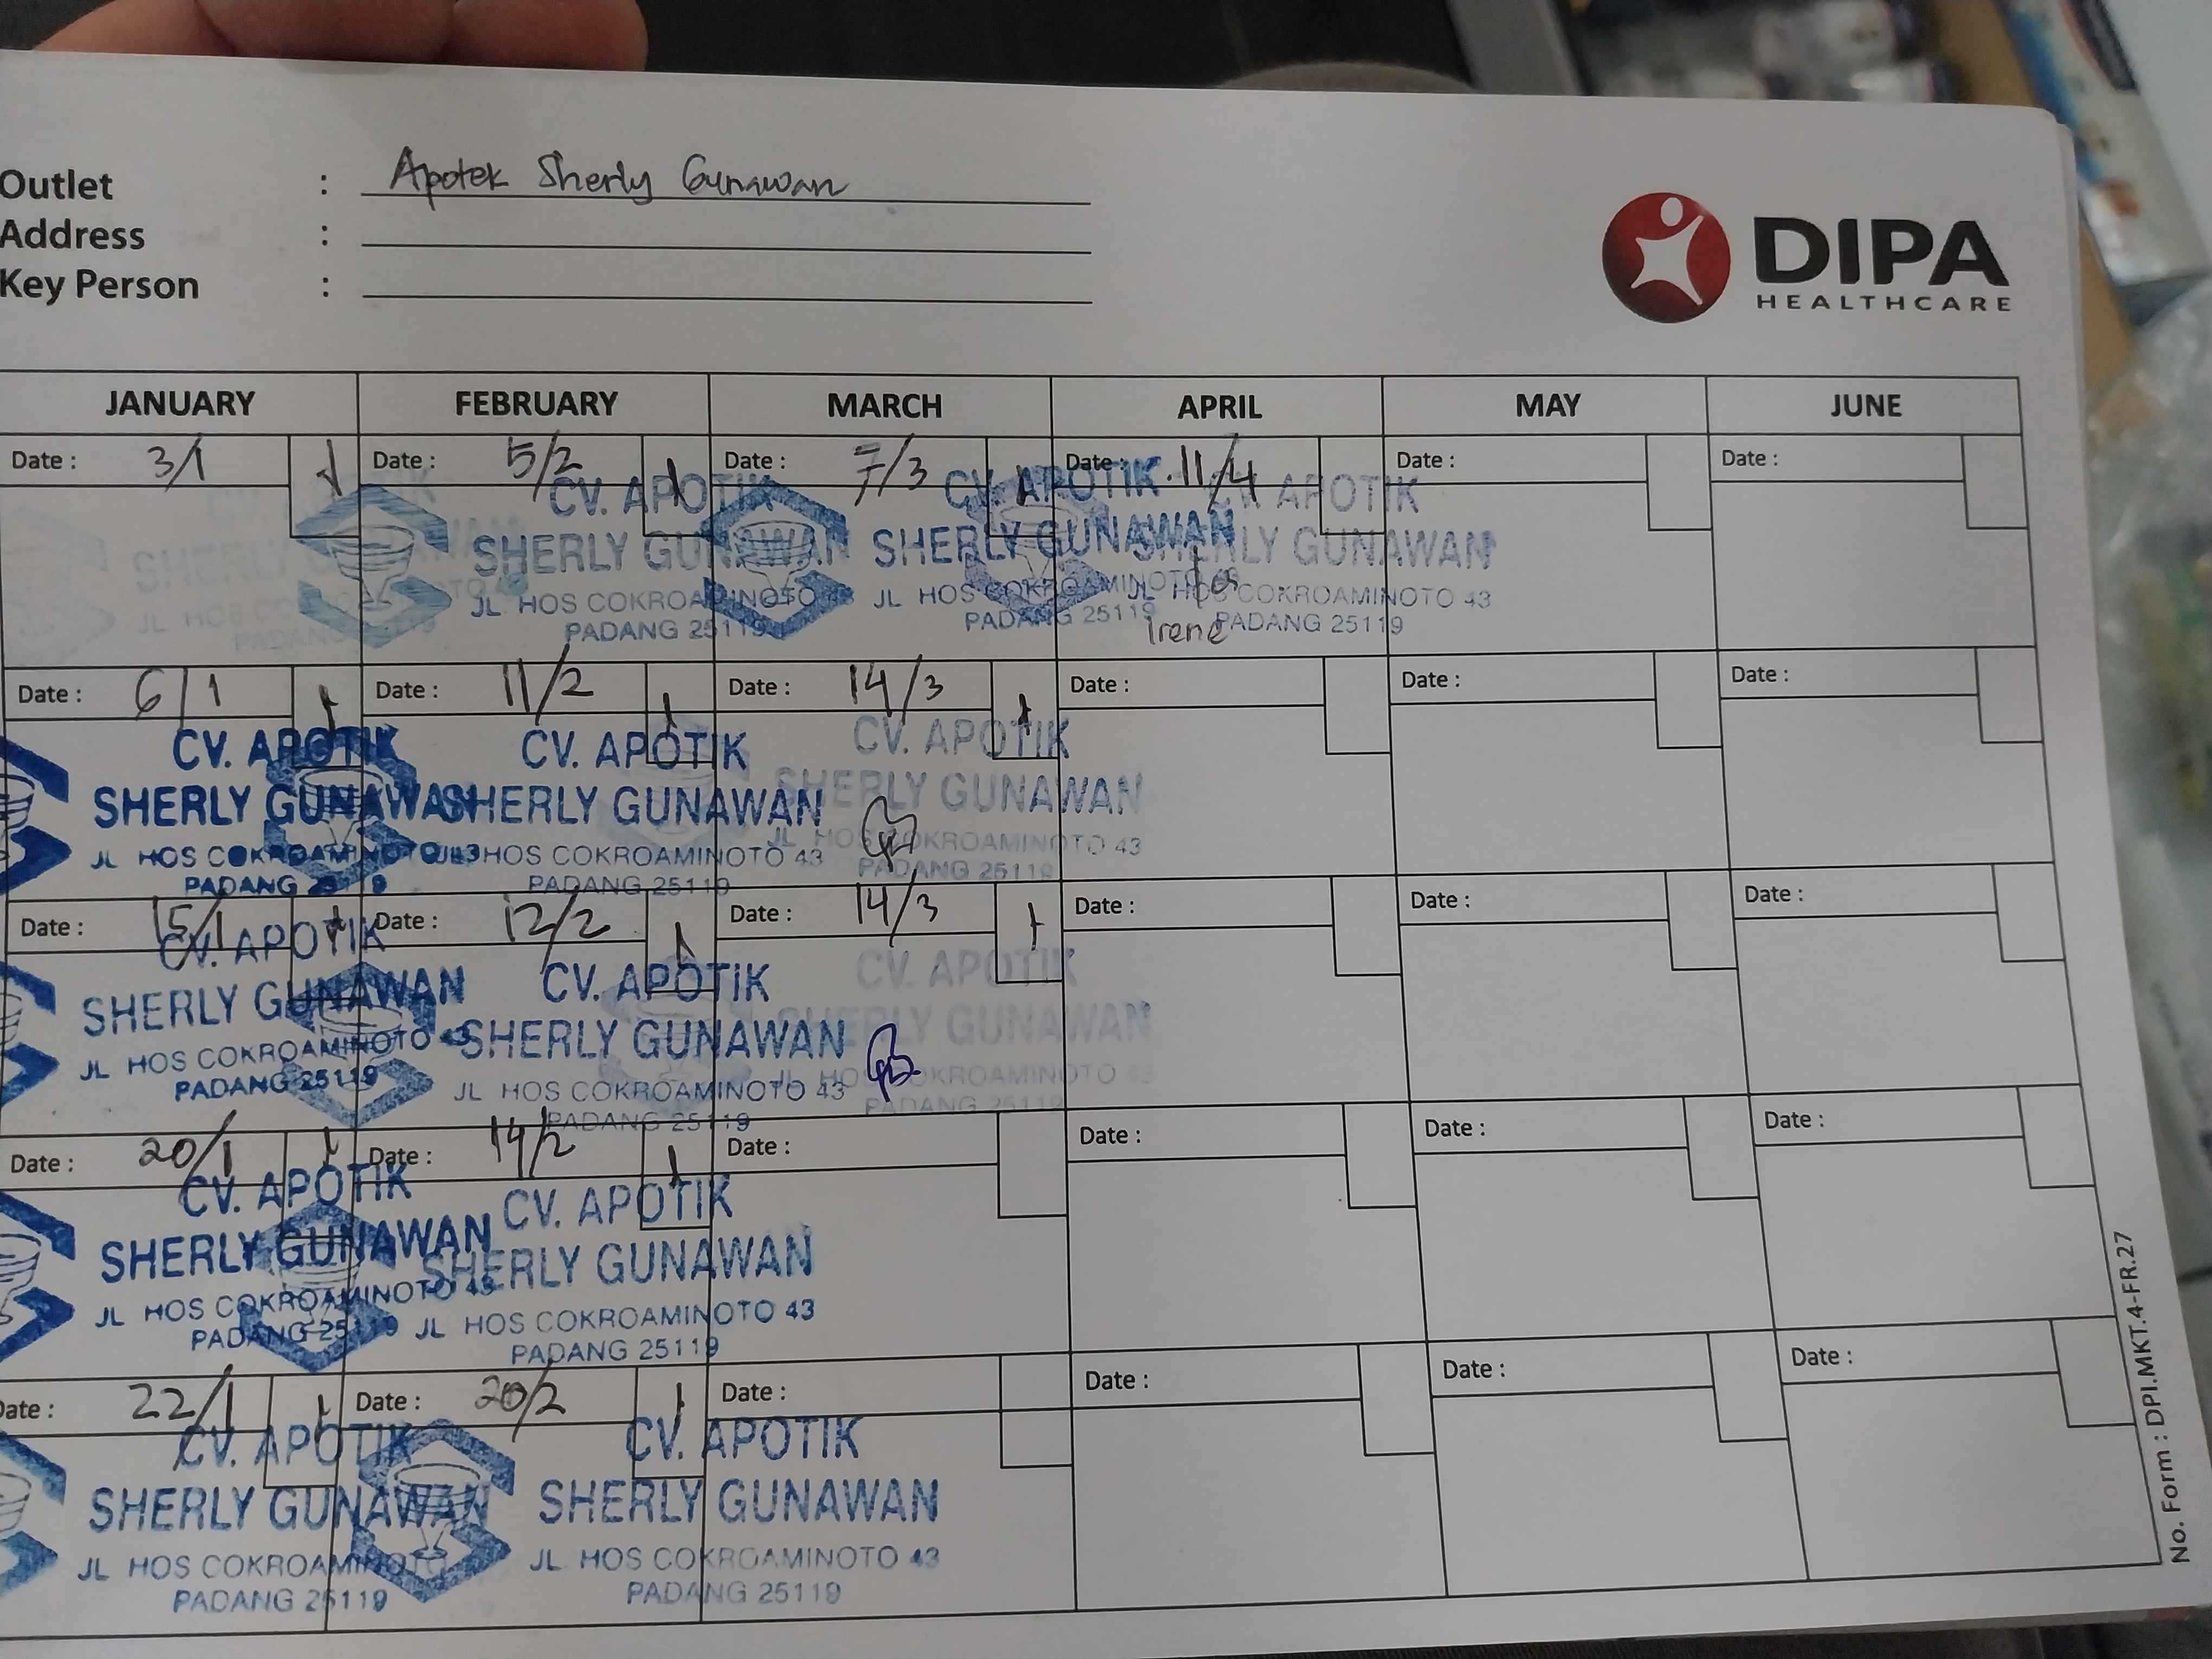 Outlet : Apotek Sherly Gunawan
Address :
Key Person :
DIPA
HEALTHCARE
JANUARY FEBRUARY MARCH APRIL MAY JUNE
Date : 3/1 Date : 5/2 Date : 7/3 Date : 11/4 Date : Date :
CV. APOTIK CV. APOTIK CV. APOTIK
SHERLY GUNAWAN SHERLY GUNAWAN SHERLY GUNAWAN SHERLY GUNAWAN
JL HOS COKROAMINOTO 43 JL HOS COKROAMINOTO JL HOS COKROAMINOTO 43
PADANG 25119 PADANG 25119 PADANG 25119
Irene
Date : 6/1 Date : 11/2 Date : 14/3 Date : Date : Date :
CV. APOTIK CV. APOTIK CV. APOTIK
SHERLY GUNAWAN SHERLY GUNAWAN SHERLY GUNAWAN
JL HOS COKROAMINOTO 43 JL HOS COKROAMINOTO 43 JL HOS COKROAMINOTO 43
PADANG 25119 PADANG 25119 PADANG 25119
Date : 15/1 Date : 12/2 Date : 14/3 Date : Date : Date :
CV. APOTIK CV. APOTIK CV. APOTIK
SHERLY GUNAWAN SHERLY GUNAWAN SHERLY GUNAWAN
JL HOS COKROAMINOTO 43 JL HOS COKROAMINOTO 43 JL HOS COKROAMINOTO 43
PADANG 25119 PADANG 25119 PADANG 25119
Date : 20/1 Date : 14/2 Date : Date : Date : Date :
CV. APOTIK CV. APOTIK
SHERLY GUNAWAN SHERLY GUNAWAN
JL HOS COKROAMINOTO 43 JL HOS COKROAMINOTO 43
PADANG 25119 PADANG 25119
Date : 22/1 Date : 20/2 Date : Date : Date : Date :
CV. APOTIK CV. APOTIK
SHERLY GUNAWAN SHERLY GUNAWAN
JL HOS COKROAMINOTO JL HOS COKROAMINOTO 43
PADANG 25119 PADANG 25119
No. Form : DPI.MKT.4-FR.27